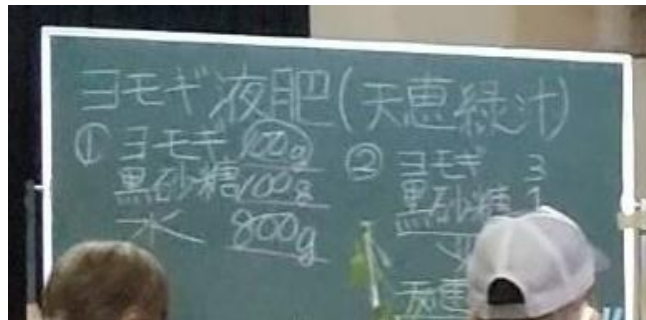 ヨモギ液肥(天恵緑汁)
① ヨモギ 100g
黒砂糖 100g
水 800g
② ヨモギ 3
黒砂糖 1
天恵